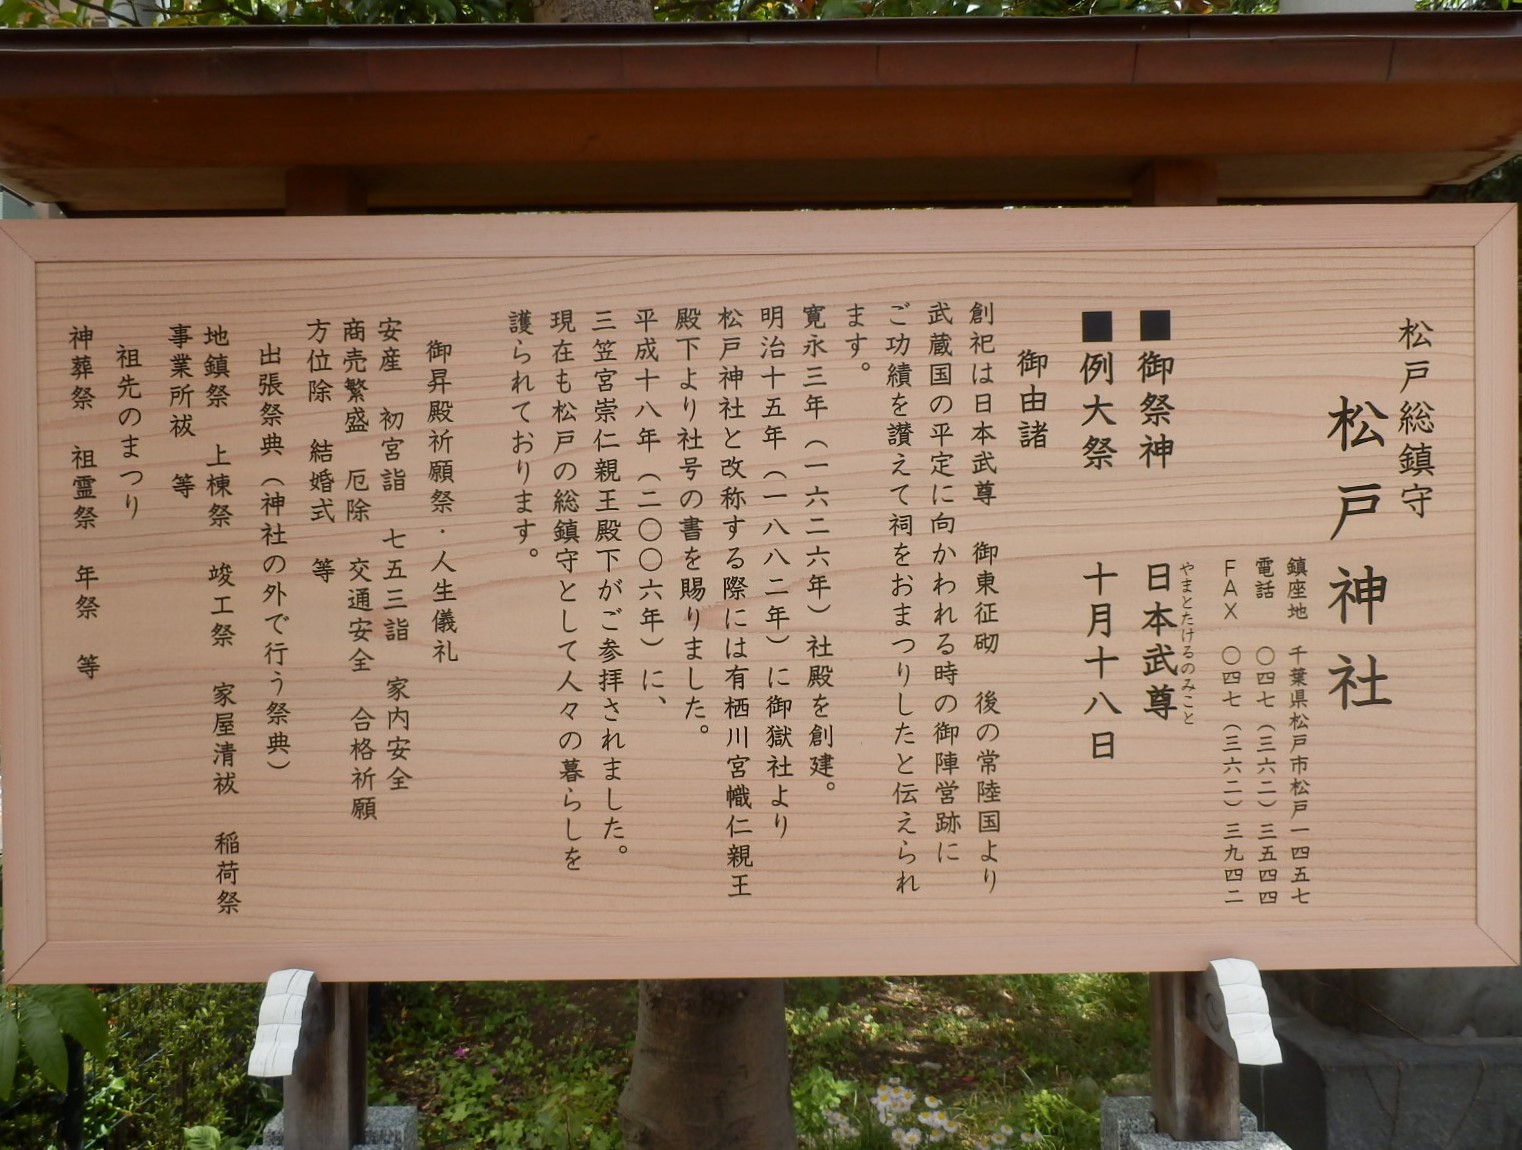 松戸総鎮守
松戸神社
鎮座地　千葉県松戸市松戸一四五七
電話　〇四七（三六二）三五四四
ＦＡＸ　〇四七（三六二）三九四二
■御祭神　日本武尊
やまとたけるのみこと
■例大祭　十月十八日
御由諸
創祀は日本武尊　御東征砌　後の常陸国より
武蔵国の平定に向かわれる時の御陣営跡に
ご功績を讃えて祠をおまつりしたと伝えられ
ます。
寛永三年（一六二六年）社殿を創建。
明治十五年（一八八二年）に御嶽社より
松戸神社と改称する際には有栖川宮幟仁親王
殿下より社号の書を賜りました。
平成十八年（二〇〇六年）に、
三笠宮崇仁親王殿下がご参拝されました。
現在も松戸の総鎮守として人々の暮らしを
護られております。
御昇殿祈願祭・人生儀礼
安産　初宮詣　七五三詣　家内安全
商売繁盛　厄除　交通安全　合格祈願
方位除　結婚式　等
出張祭典（神社の外で行う祭典）
地鎮祭　上棟祭　竣工祭　家屋清祓　稲荷祭
事業所祓　等
祖先のまつり
神葬祭　祖霊祭　年祭　等